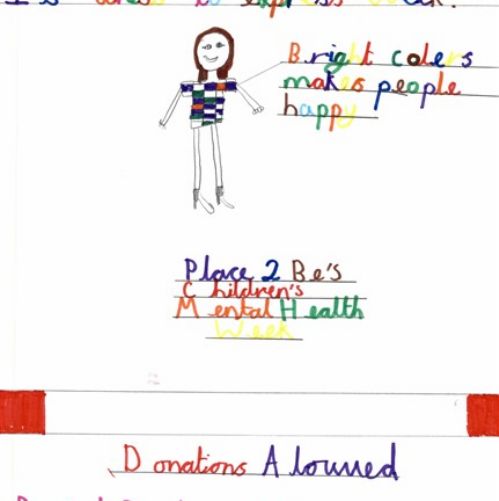 dress to express
Bright colers
makes people
happy
Place 2 Be's
Children's
Mental Health
Week
Donations Alouwed